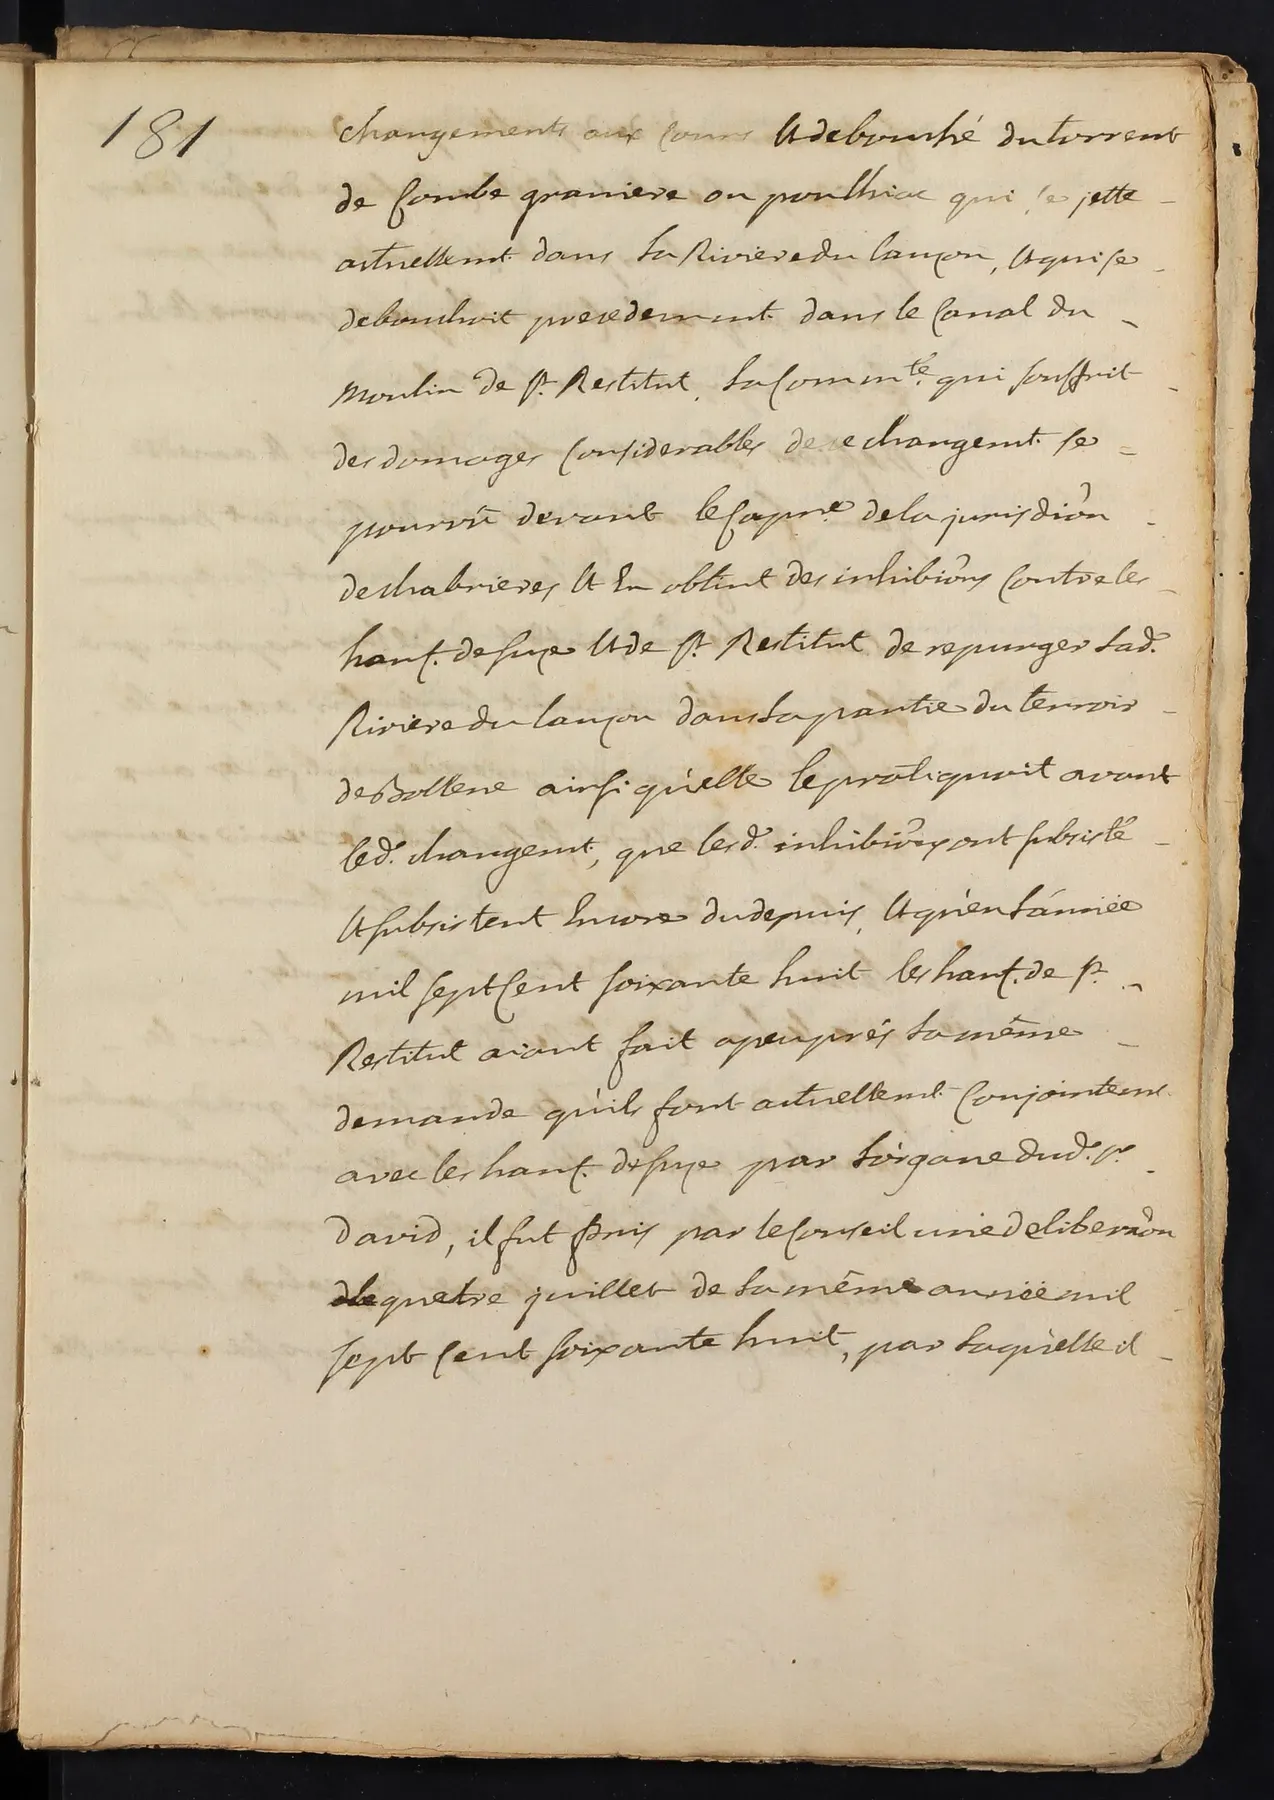 181
changements aux cours et debouché du torrent
de Combe graniere ou ponthiac qui se jette
actuellemt. dans la Riviere du lauzon, et qui se
debouchoit precedemment dans le Canal du
Moulin de st. Restitut, la Commté. qui souffrit
des domages considerables de ce changemt. se
pourvû devant le Capne. de la jurisdiôn
deschabrieres et En obtint des inhibiôns contre les
hant. de suze et de st. Restitut de repurger lad.
Riviere du lauzon dans la partie du terroir
de Bollene ainsi qu'elle le pratiquoit avant
led. changemt, que lesd. inhibiôns ont subsisté
et subsistent Encore du depuis, et qu'en l'année
mil sept Cent soixante huit les hant. de st.
Restitut aiant fait apeuprés la même
demande qu'ils font actuellemt. Conjointemt.
avec les hant. de suze par l'órgane dud. sr.
David, il fut pris par le Conseil une deliberaôn
le quatre juillet de la même année mil
sept Cent soixante huit, par laquelle il